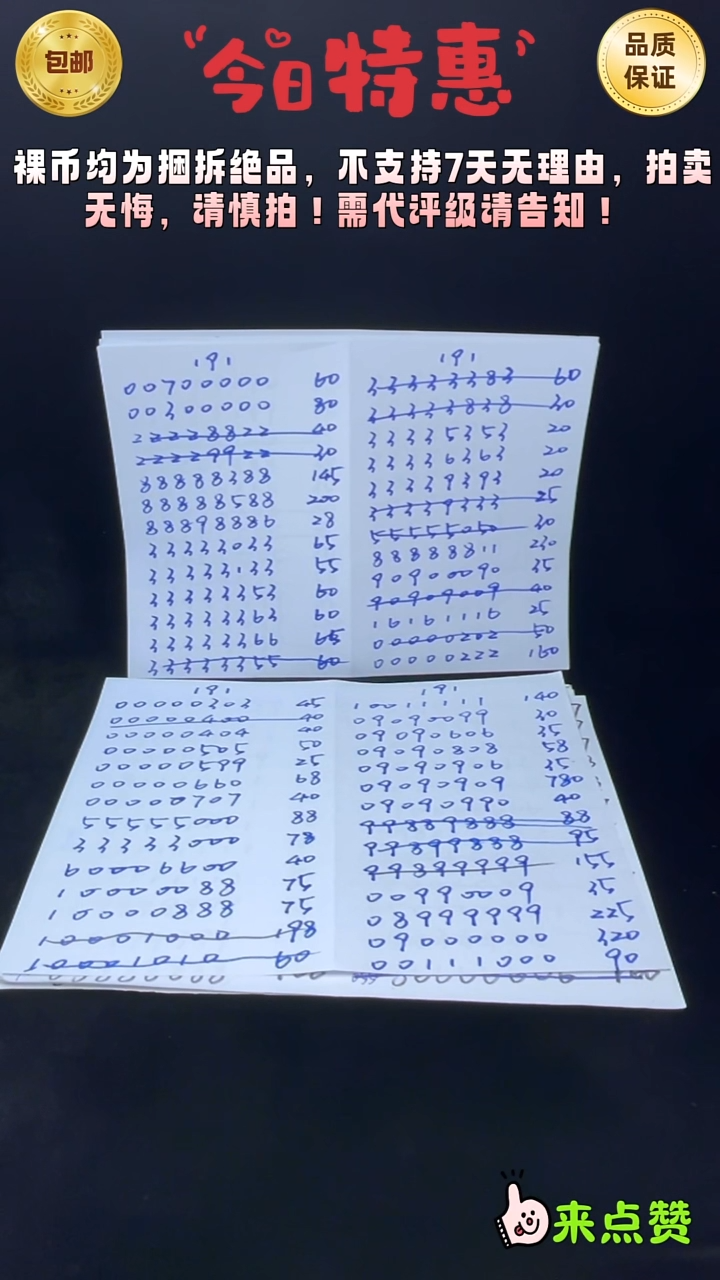 包邮
“今日特惠”
品质
保证
裸币均为捆拆绝品，不支持7天无理由，拍卖
无悔，请慎拍！需代评级请告知！
191
00700000 60
00300000 80
22228822 40
22229922 30
88888388 145
88888588 200
88898886 28
33333033 65
33333133 55
33333353 60
33333363 60
33333366 65
33333355 60
191
33333383 60
33333838 30
33335353 20
33336363 20
33339393 20
33339333 25
55555050 30
88888811 230
90900090 35
90909009 40
16161116 25
00000202 50
00000222 160
191
00000303 45
00000400 40
00000404 40
00000505 50
00000599 25
00000660 68
00000707 40
55555000 88
33333000 78
60006600 40
10000088 75
10000888 75
10001000 198
10001010 60
191
10011111 140
09090099 30
09090606 35
09090808 58
09090906 35
09090909 780
09090990 40
99889888 88
99899888 95
99899999 155
00990009 35
08999999 225
09000000 320
00111000 90
来点赞